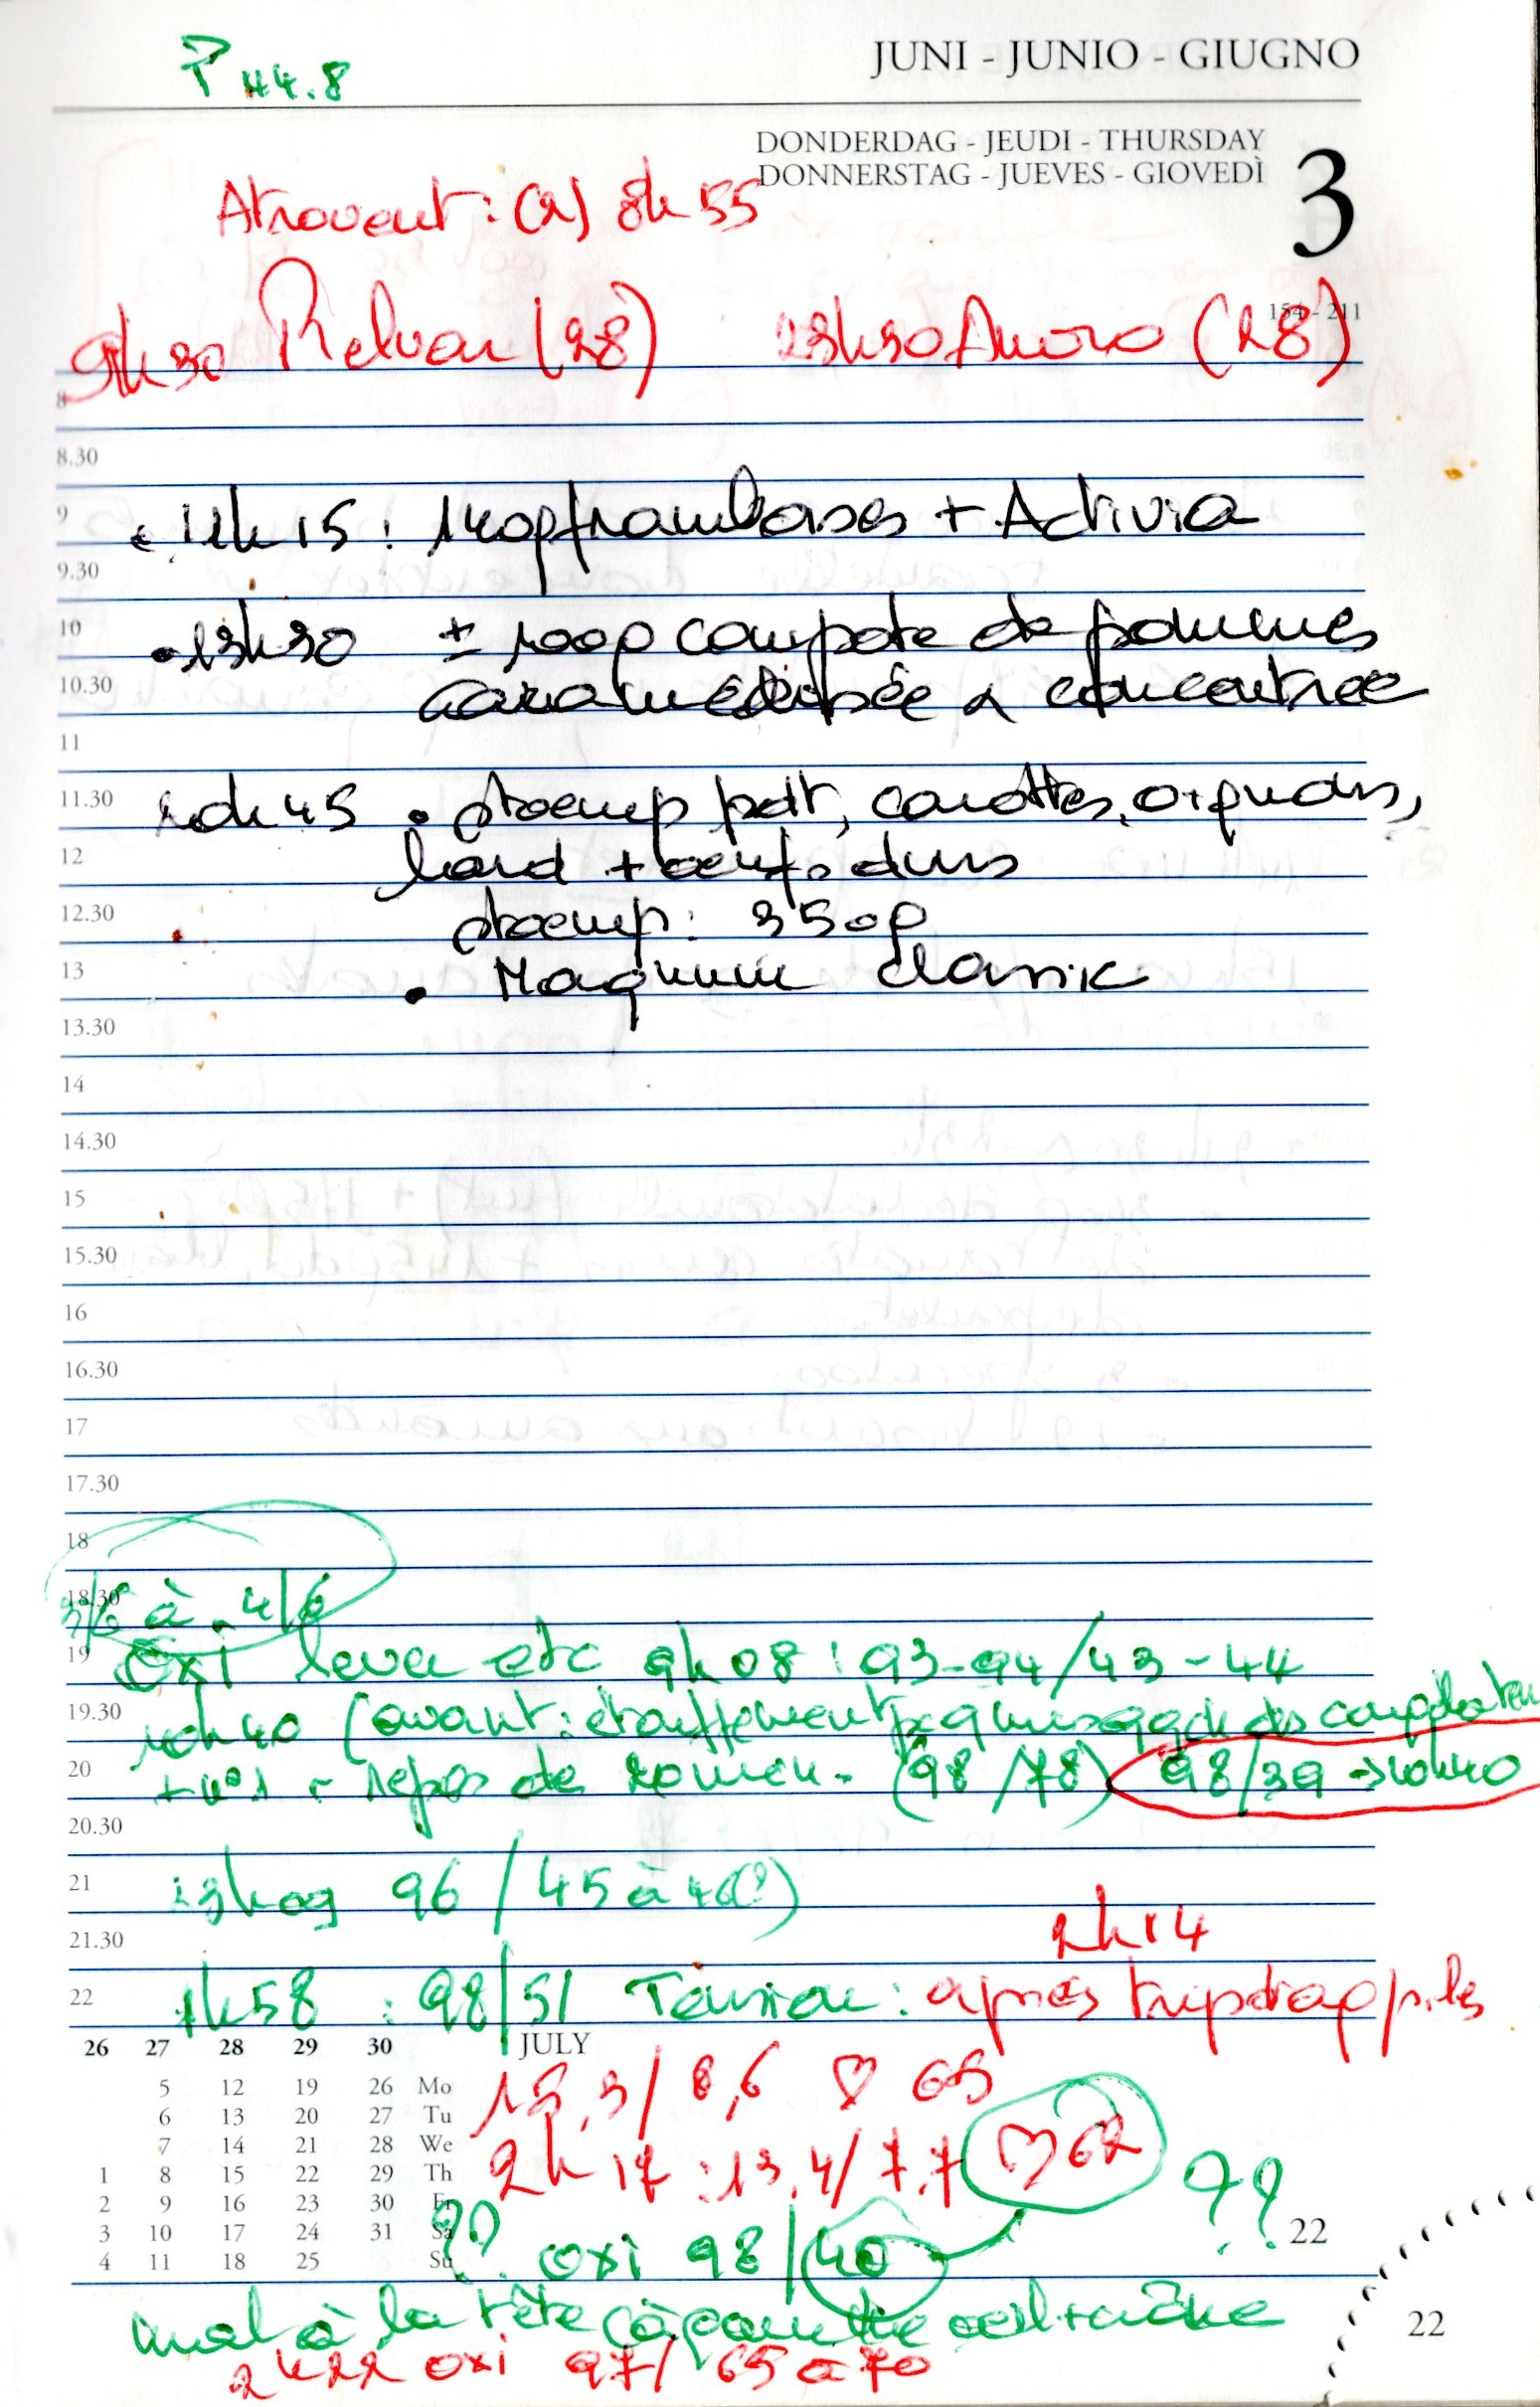 P 44.8
JUNI - JUNIO - GIUGNO
DONDERDAG - JEUDI - THURSDAY
DONNERSTAG - JUEVES - GIOVEDÌ
3
Atrovent: (2) 8h55
154 - 211
9h30 Relvar (28) 23h30 Anoro (28)
8
8.30
9
• 11h15 : 140g framboises + Activia
9.30
10
• 13h30 ± 100g compote de pommes
10.30
caramélisée & concentrée
11
11.30
• stoemp pdt, carottes,
12
lard + oeufs durs
12.30
stoemp: 350g
13
• Magnum classic
13.30
14
14.30
15
15.30
16
16.30
17
17.30
18
18.30
3/6 à 4/6
19
Oxi lever etc 9h08 : 93-94/43-44
19.30
10h40 (avant: étouffement
20
repos de (98/78) 98/39 → 10h40
20.30
21
96 / 45 à
21.30
2h14
22
1h58 : 98/51 Tension: après
26 27 28 29 30 JULY
5 12 19 26 Mo
6 13 20 27 Tu
7 14 21 28 We
1 8 15 22 29 Th
2 9 16 23 30 Fr
3 10 17 24 31 Sa
4 11 18 25 Su
/ 8,6 ♡ 65
2h17 : 13.4/7.7 ♡ 62
?? oxi 98/40 ??
22
mal à la tête
22
2h22 oxi 97/ 65 à 70